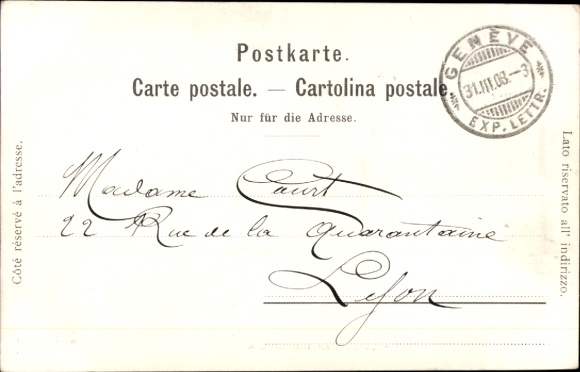 Postkarte.
Carte postale. — Cartolina postale.
Nur für die Adresse.
GENÈVE
31.III.03.–3
EXP. LETTR.
Côté réservé à l'adresse.
Madame Court
22 Rue de la Quarantaine
Lyon
Lato riservato all' indirizzo.